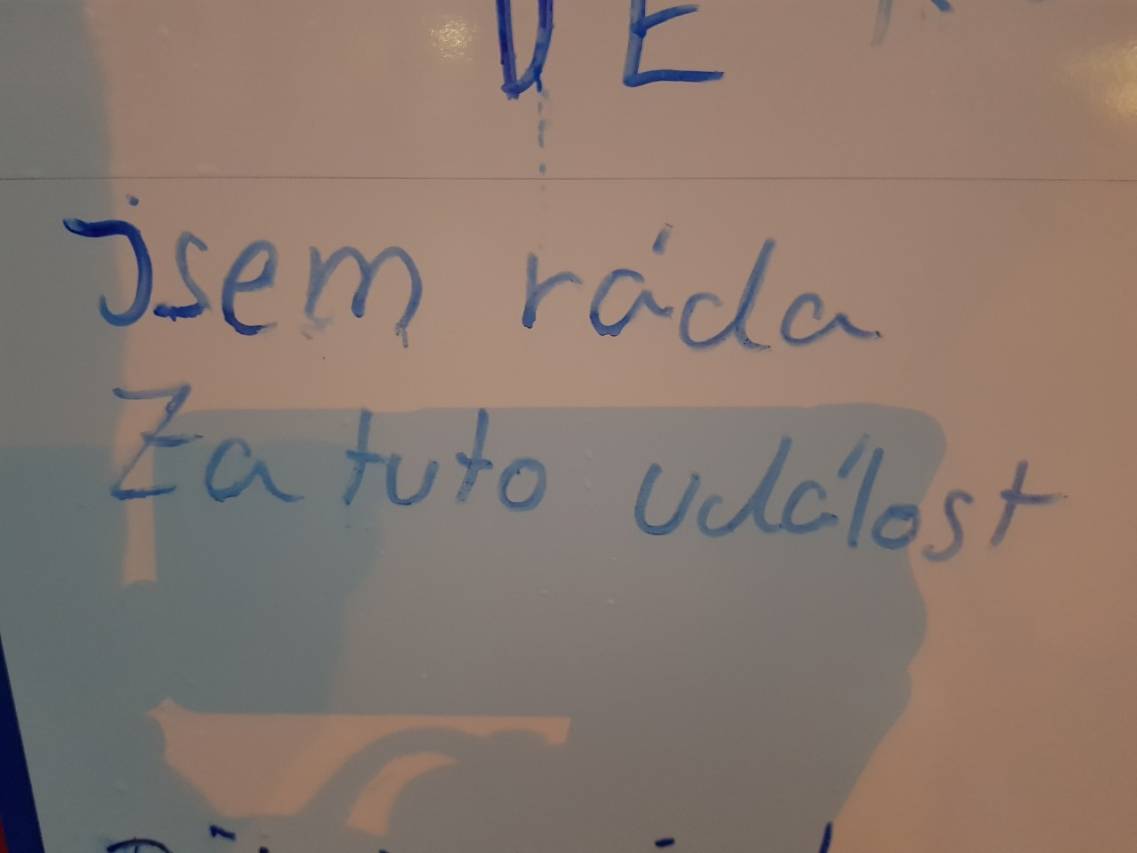 DE
jsem ráda
Za tuto událost